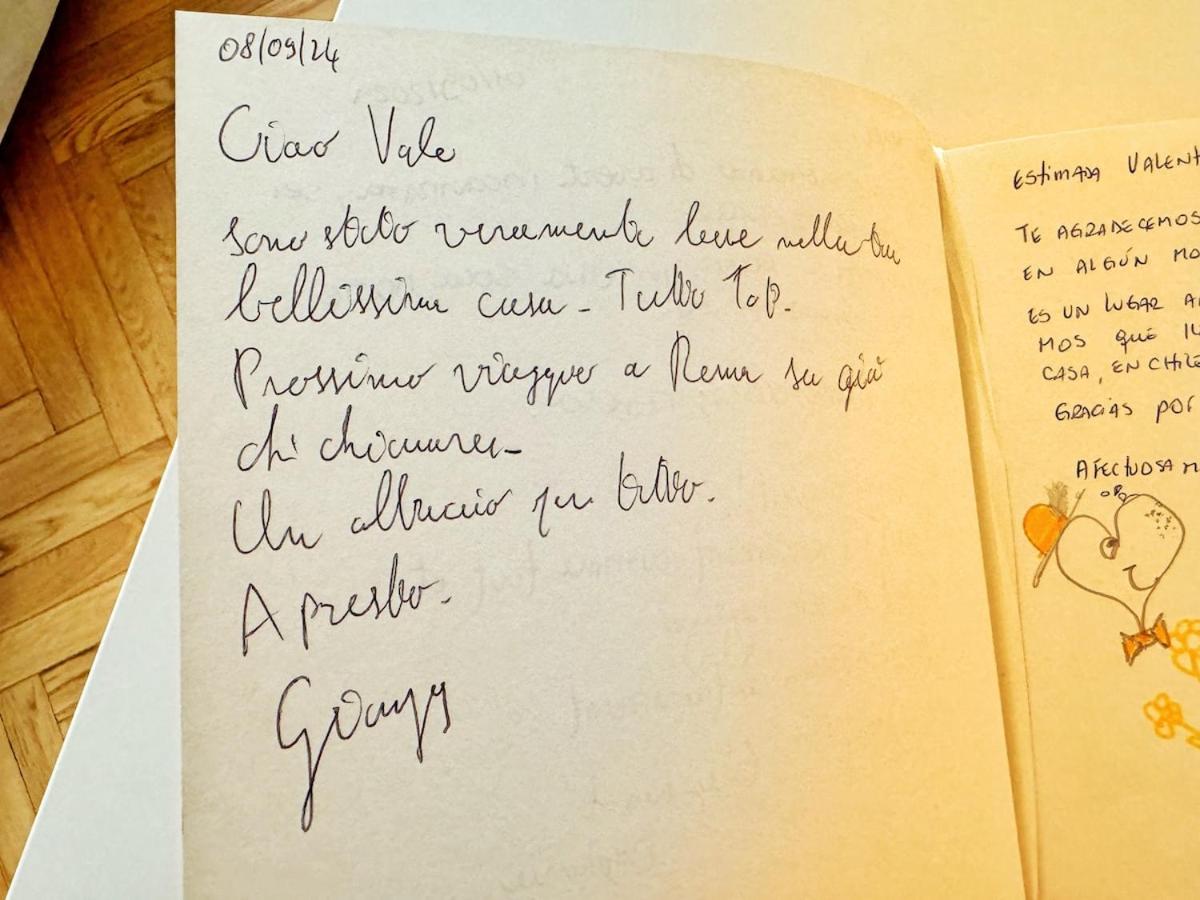 08/09/24
Ciao Vale
sono stato veramente bene nella tua
bellissima casa - Tutto Top.
Prossimo viaggio a Roma so già
chi chiamare -
Un abbraccio per tutto.
A presto.
ESTIMADA VALENT
TE AGRADECEMOS
EN ALGÚN MO
ES UN LUGAR A
MOS QUE
CASA, EN CHILE
GRACIAS POR
AFECTUOSAM